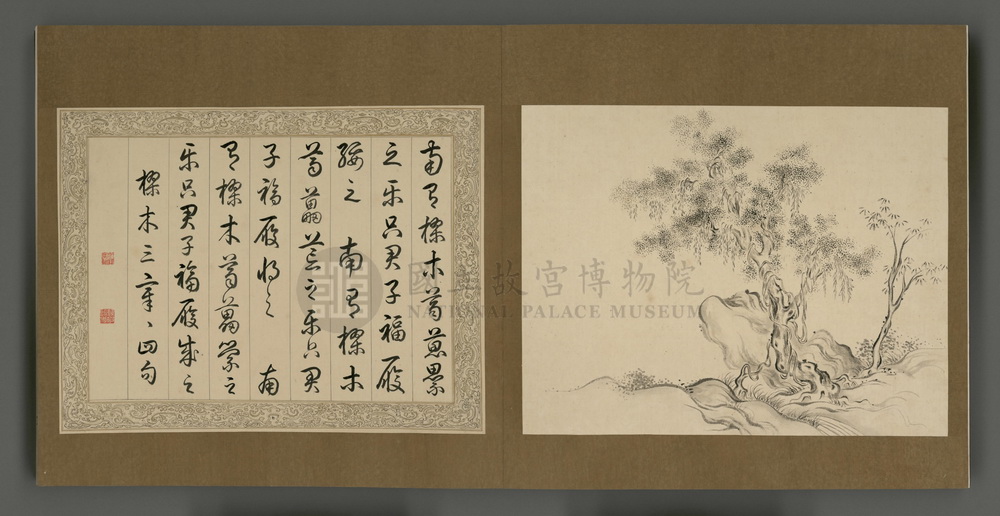 南有樛木葛藟纍
之樂只君子福履
綏之 南有樛木
葛藟荒之樂只君
子福履將之 南
有樛木葛藟縈之
樂只君子福履成之
樛木三章〻四句
國立故宮博物院
NATIONAL PALACE MUSEUM